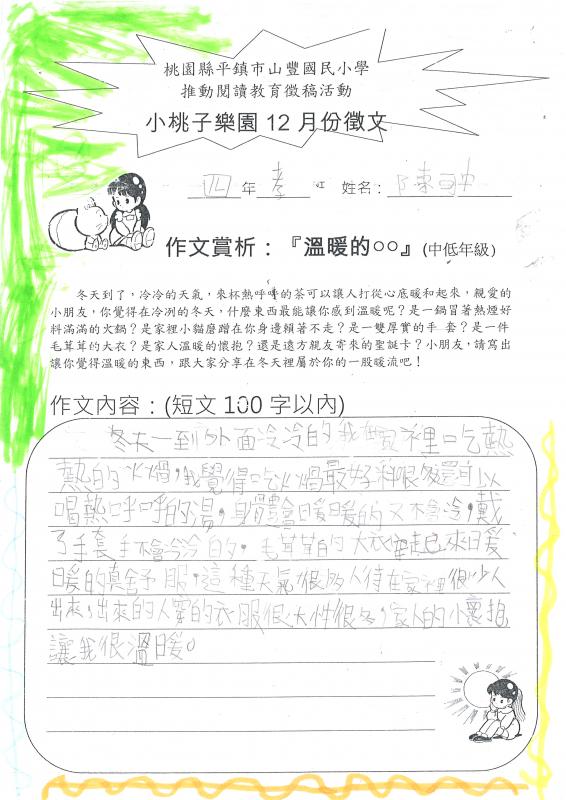 桃園縣平鎮市山豐國民小學
推動閱讀教育徵稿活動
小桃子樂園 12 月份徵文
四年孝 姓名：陳
作文賞析：『溫暖的○○』(中低年級)
冬天到了，冷冷的天氣，來杯熱呼呼的茶可以讓人打從心底暖和起來，親愛的
小朋友，你覺得在冷冽的冬天，什麼東西最能讓你感到溫暖呢？是一鍋冒著熱煙好
料滿滿的火鍋？是家裡小貓磨蹭在你身邊賴著不走？是一雙厚實的手套？是一件
毛茸茸的大衣？是家人溫暖的懷抱？還是遠方親友寄來的聖誕卡？小朋友，請寫出
讓你覺得溫暖的東西，跟大家分享在冬天裡屬於你的一股暖流吧！
作文內容：(短文 100 字以內)
冬天一到外面冷冷的我在家裡吃熱
熱的火鍋，我覺得吃火鍋最好料很多還可以
喝熱呼呼的湯，身體會暖暖的又不會冷，戴
了手套手不會冷冷的。毛茸茸的大衣穿起來暖
暖的真舒服，這種天氣很多人待在家裡很少人
出來，出來的人穿的衣服很大件很多，家人的小懷抱
讓我很溫暖。